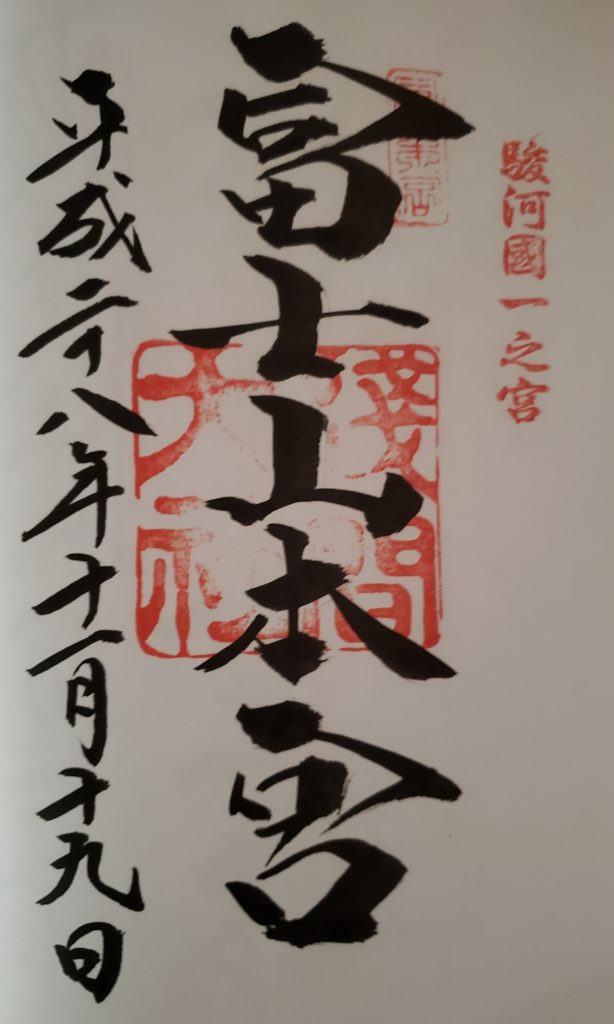 駿河國一之宮
富士山本宮
淺間
大社
平成二十八年十一月十九日